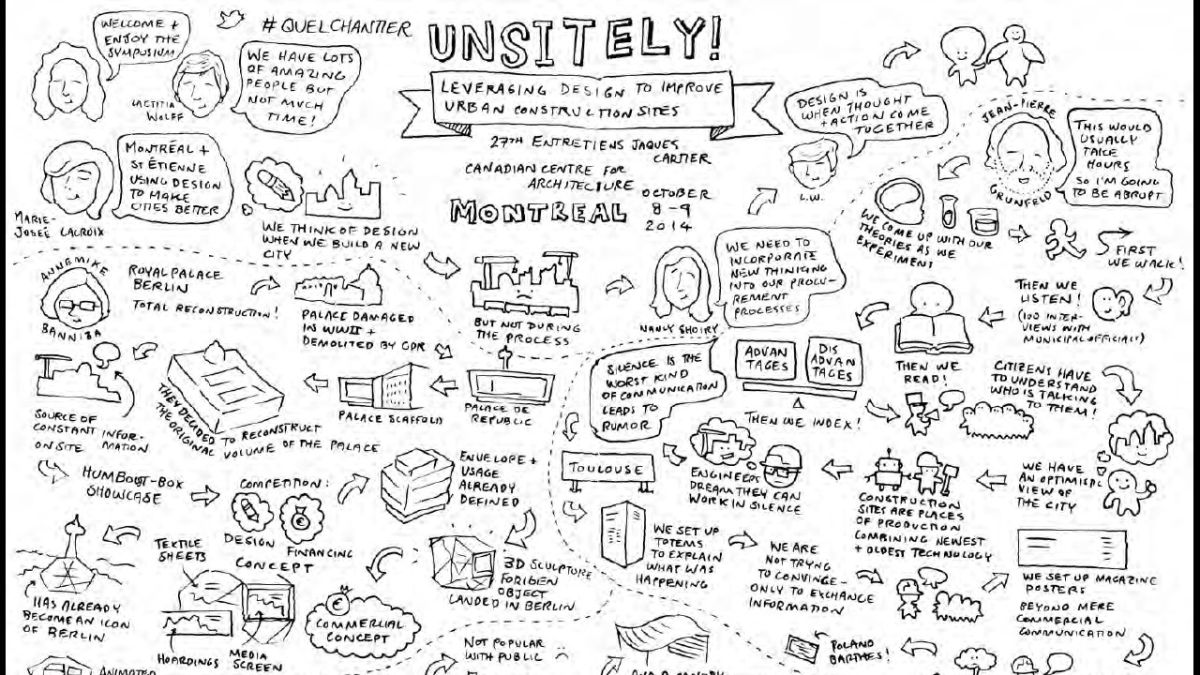 WELCOME +
ENJOY THE
SYMPOSIUM
# QUELCHANTIER
LAETITIA
WOLFF
WE HAVE LOTS
OF AMAZING
PEOPLE BUT
NOT MUCH
TIME!
UNSITELY!
LEVERAGING DESIGN TO IMPROVE
URBAN CONSTRUCTION SITES
27TH ENTRETIENS JAQUES
CARTIER
CANADIAN CENTRE FOR
ARCHITECTURE
MONTREAL
OCTOBER
8-9
2014
MONTRÉAL +
ST ÉTIENNE
USING DESIGN
TO MAKE
CITIES BETTER
MARIE-
JOSÉE LACROIX
WE THINK OF DESIGN
WHEN WE BUILD A NEW
CITY
BUT NOT DURING
THE PROCESS
NANLY SHOIRY
WE NEED TO
INCORPORATE
NEW THINKING
INTO OUR PROCU-
REMENT
PROCESSES
L.W.
DESIGN IS
WHEN THOUGHT
+ ACTION COME
TOGETHER
JEAN-PIERRE
GRUNFELD
THIS WOULD
USUALLY
TAKE
HOURS
SO I'M GOING
TO BE ABRUPT
WE COME UP WITH OUR
THEORIES AS WE
EXPERIMENT
FIRST
WE WALK!
THEN WE
LISTEN!
(100 INTER-
VIEWS WITH
MUNICIPAL OFFICIALS)
THEN WE
READ!
ADVAN
TAGES
DIS
ADVAN
TAGES
THEN WE INDEX!
CITIZENS HAVE
TO UNDERSTAND
WHO IS TALKING
TO THEM!
WE HAVE
AN OPTIMISTIC
VIEW OF
THE CITY
CONSTRUCTION
SITES ARE PLACES
OF PRODUCTION
COMBINING NEWEST
+ OLDEST TECHNOLOGY
ENGINEERS
DREAM THEY CAN
WORK IN SILENCE
SILENCE IS THE
WORST KIND
OF COMMUNICATION
LEADS TO
RUMOR
TOULOUSE
WE SET UP
TOTEMS
TO EXPLAIN
WHAT WAS
HAPPENING
WE ARE
NOT TRYNG
TO CONVINCE -
ONLY TO EXCHANGE
INFORMATION
WE SET UP MAGAZINE
POSTERS
BEYOND MERE
COMMERCIAL
COMMUNICATION
ROLAND
BARTHES!
ANNEMIKE
BANNIZA
ROYAL PALACE
BERLIN
TOTAL RECONSTRUCTION!
PALACE DAMAGED
IN WWII +
DEMOLITED BY GDR
PALACE DE
REPUBLIC
PALACE SCAFFOLD
THEY DECIDED TO RECONSTRUCT
THE ORIGINAL VOLUME OF THE PALACE
SOURCE OF
CONSTANT INFOR-
MATION
ON SITE
HUMBOLDT-BOX
SHOWCASE
COMPETITION:
DESIGN
FINANCING
CONCEPT
ENVELOPE +
USAGE
ALREADY
DEFINED
3D SCULPTURE
FORIGIEN
OBJECT
LANDED IN BERLIN
COMMERCIAL
CONCEPT
TEXTILE
SHEETS
HOARDINGS
MEDIA
SCREEN
HAS ALREADY
BECOME AN ICON
OF BERLIN
NOT POPULAR
WITH PUBLIC
ANIMATED